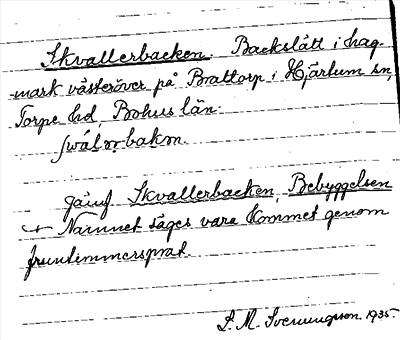 Skvallerbacken. Backslått i hag-
mark västeröver på Brattorp i Hjärtum sn,
Torpe hd, Bohus län.
Jämf Skvallerbacken, Bebyggelsen
Namnet säges vara kommet genom
fruntimmersprat.
S. M. Svenungsson. 1935.